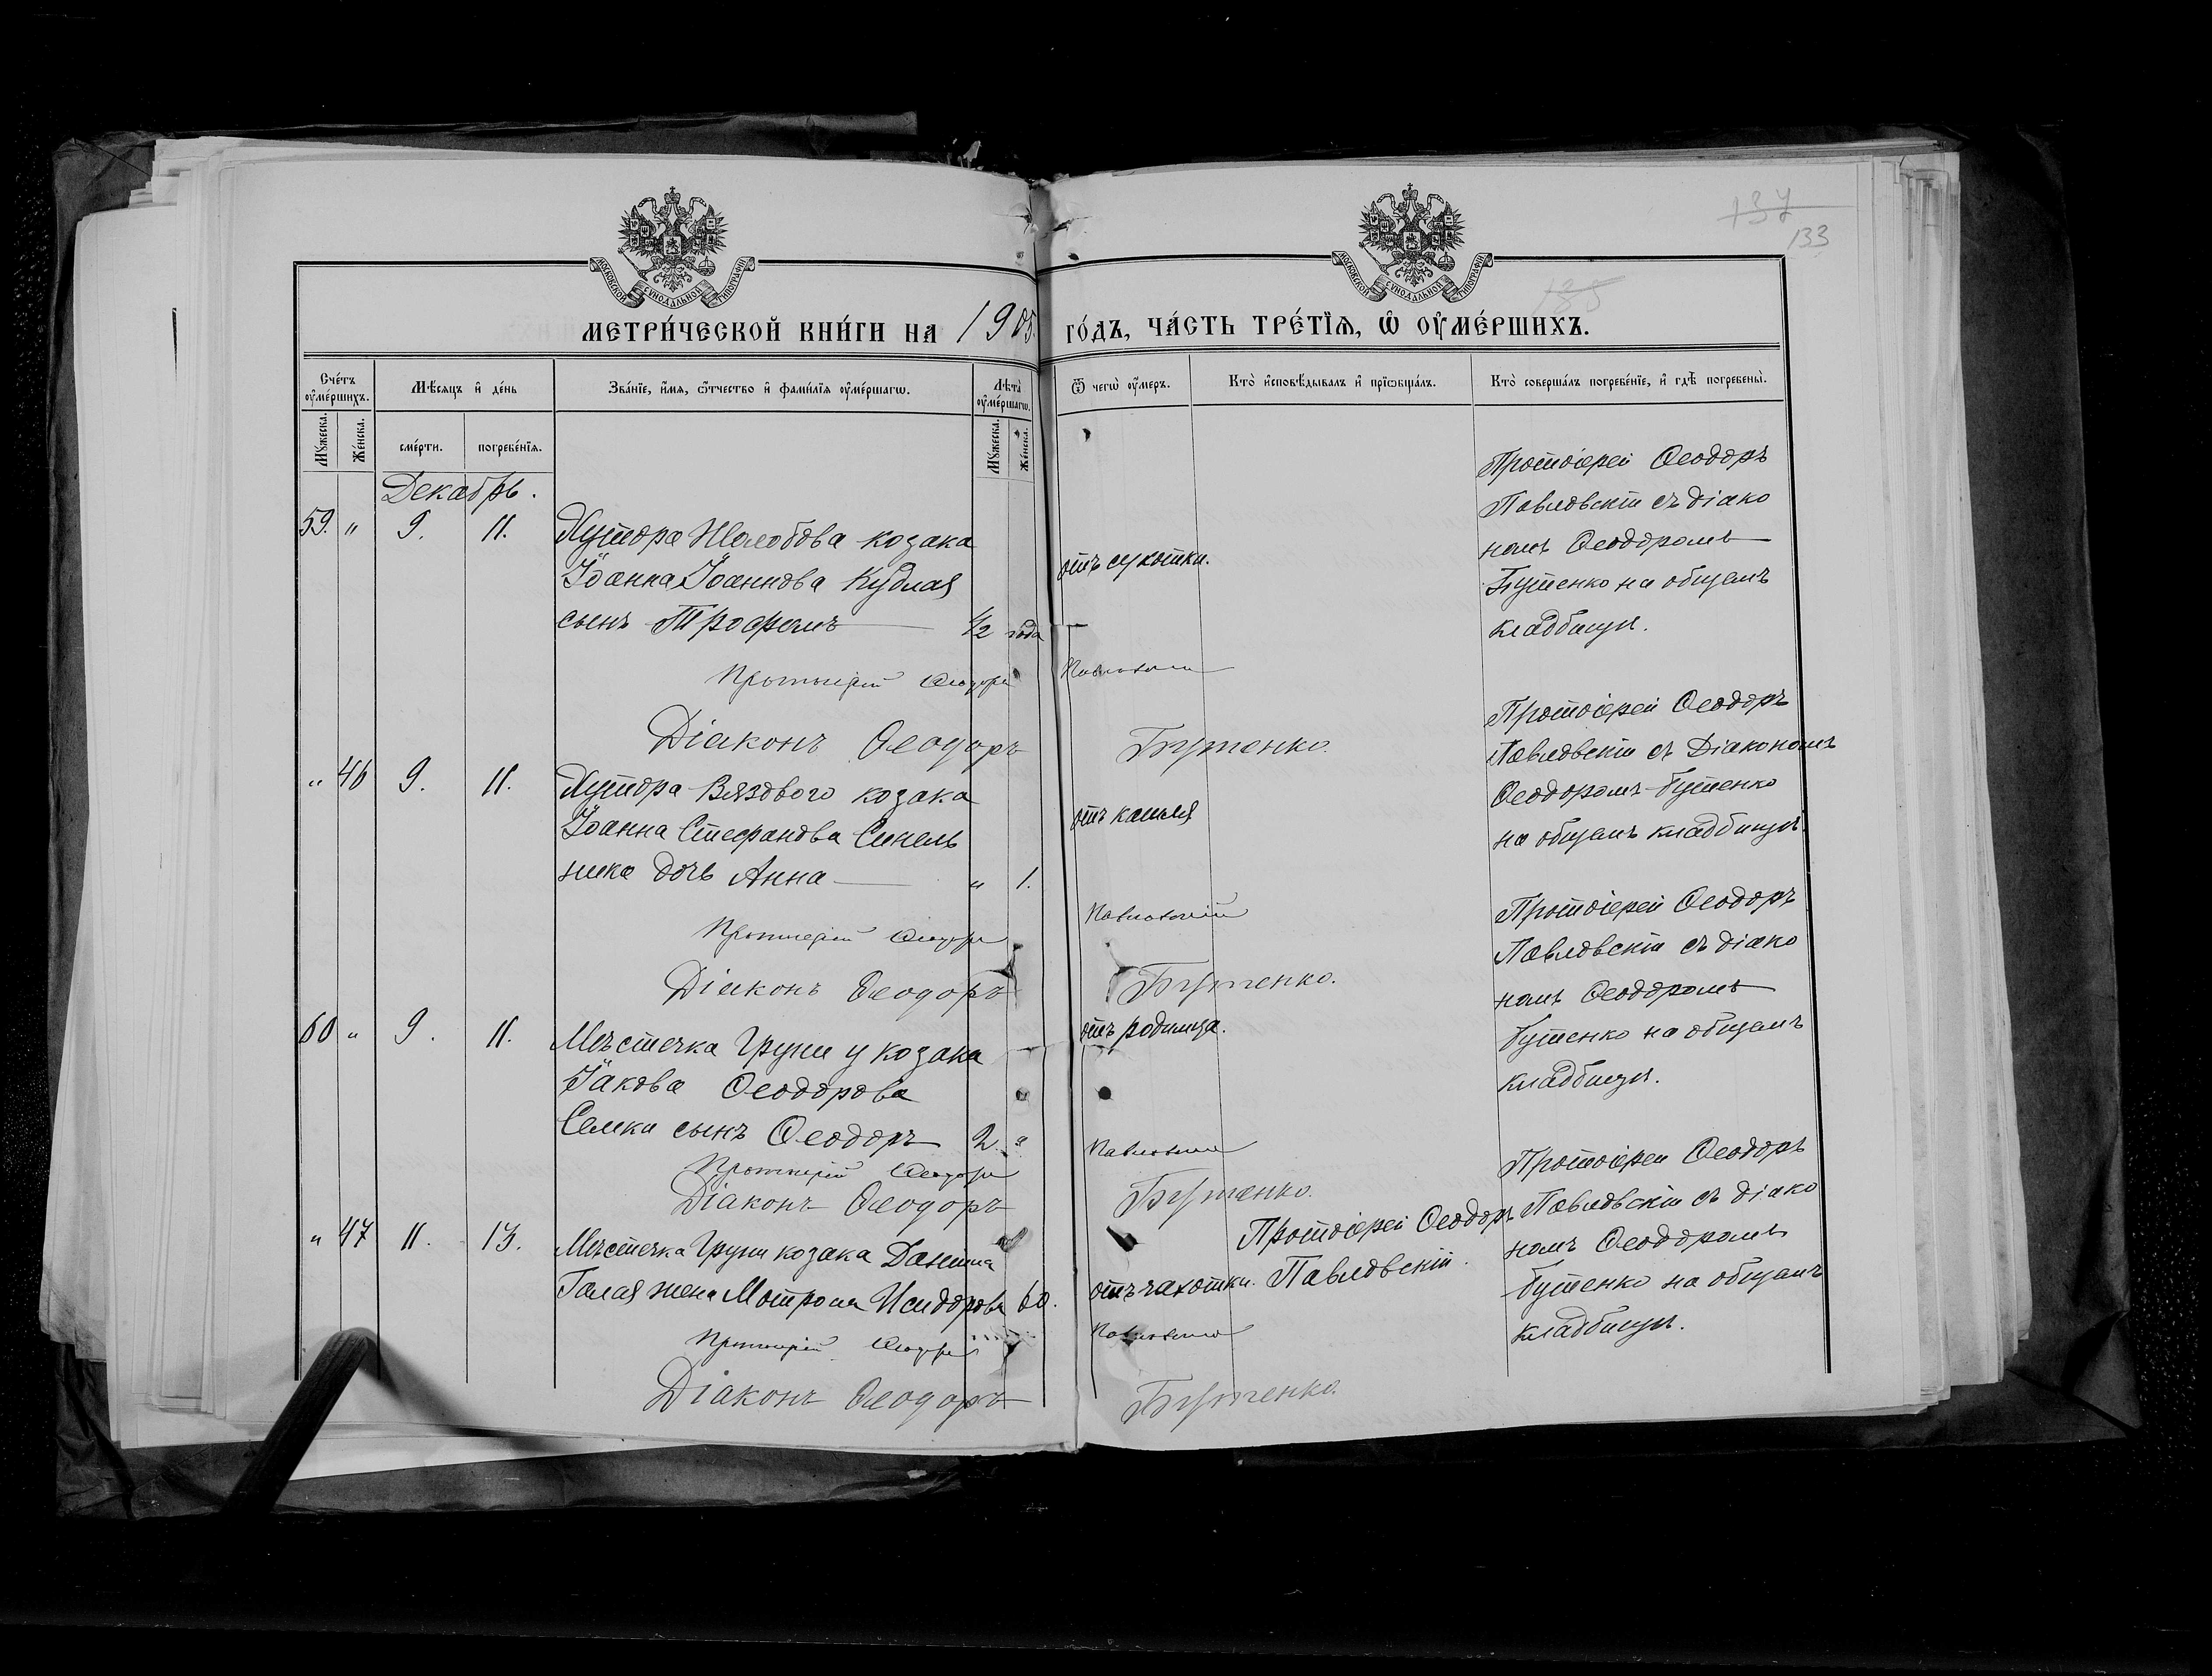 137
133
135
МОСКОВСКОЙ СУНОДАЛЬНОЙ ТИПОГРАФІИ
МОСКОВСКОЙ СУНОДАЛЬНОЙ ТИПОГРАФІИ
МЕТРИ́ЧЕСКОЙ КНИ́ГИ НА 1905 ГО́ДЪ, ЧА́СТЬ ТРЕ́ТЇѦ, Ѡ҆ ОУ҆МЕ́РШИХЪ.
Сче́тъ оу҆ме́ршихъ.
Мѣ́сѧцъ и҆ де́нь
Зва́нїе, и҆́мѧ, ѻ҆́тчество и҆ фами́лїѧ оу҆ме́ршагѡ.
Лѣ́та оу҆ме́ршагѡ.
Ѿ чегѡ̀ оу҆́меръ.
Кто̀ и҆сповѣ́дывалъ и҆ прїѡбща́лъ.
Кто̀ соверша́лъ погребе́нїе, и҆ гдѣ̀ погребены̀.
Мꙋ́жеска.
Же́нска.
сме́рти.
погребе́нїѧ.
Мꙋ́жеска.
Же́нска.
Декабрь.
59. " 9. 11.
Хутора Жолобова козака
Іоанна Іоаннова Кублая
сынъ Трофимъ ½ года
отъ сухотки.
Протоіерей Ѳеодоръ
Павловскій съ діако
номъ Ѳеодоромъ
Бутенко на общемъ
кладбищѣ.
Протоіерей Ѳеодоръ Павловскій
Діаконъ Ѳеодоръ Бутенко.
" 46 9. 11.
Хутора Вязоваго козака
Іоанна Стефанова Синель
ника дочь Анна " 1.
отъ кашля
Протоіерей Ѳеодоръ
Павловскій съ Діакономъ
Ѳеодоромъ Бутенко
на общемъ кладбищѣ.
Протоіерей Ѳеодоръ Павловскій
Діаконъ Ѳеодоръ Бутенко.
60 " 9. 11.
Мѣстечка Груни у козака
Іакова Ѳеодорова
Семки сынъ Ѳеодоръ 2. "
отъ родимца.
Протоіерей Ѳеодоръ
Павловскій съ діако
номъ Ѳеодоромъ
Бутенко на общемъ
кладбищѣ.
Протоіерей Ѳеодоръ Павловскій
Діаконъ Ѳеодоръ Бутенко.
" 47 11. 13.
Мѣстечка Груни козака Даніила
Галая жена Мотрона Исидорова 60.
отъ чахотки.
Протоіерей Ѳеодоръ
Павловскій.
Протоіерей Ѳеодоръ
Павловскій съ діако
номъ Ѳеодоромъ
Бутенко на общемъ
кладбищѣ.
Протоіерей Ѳеодоръ Павловскій
Діаконъ Ѳеодоръ Бутенко.